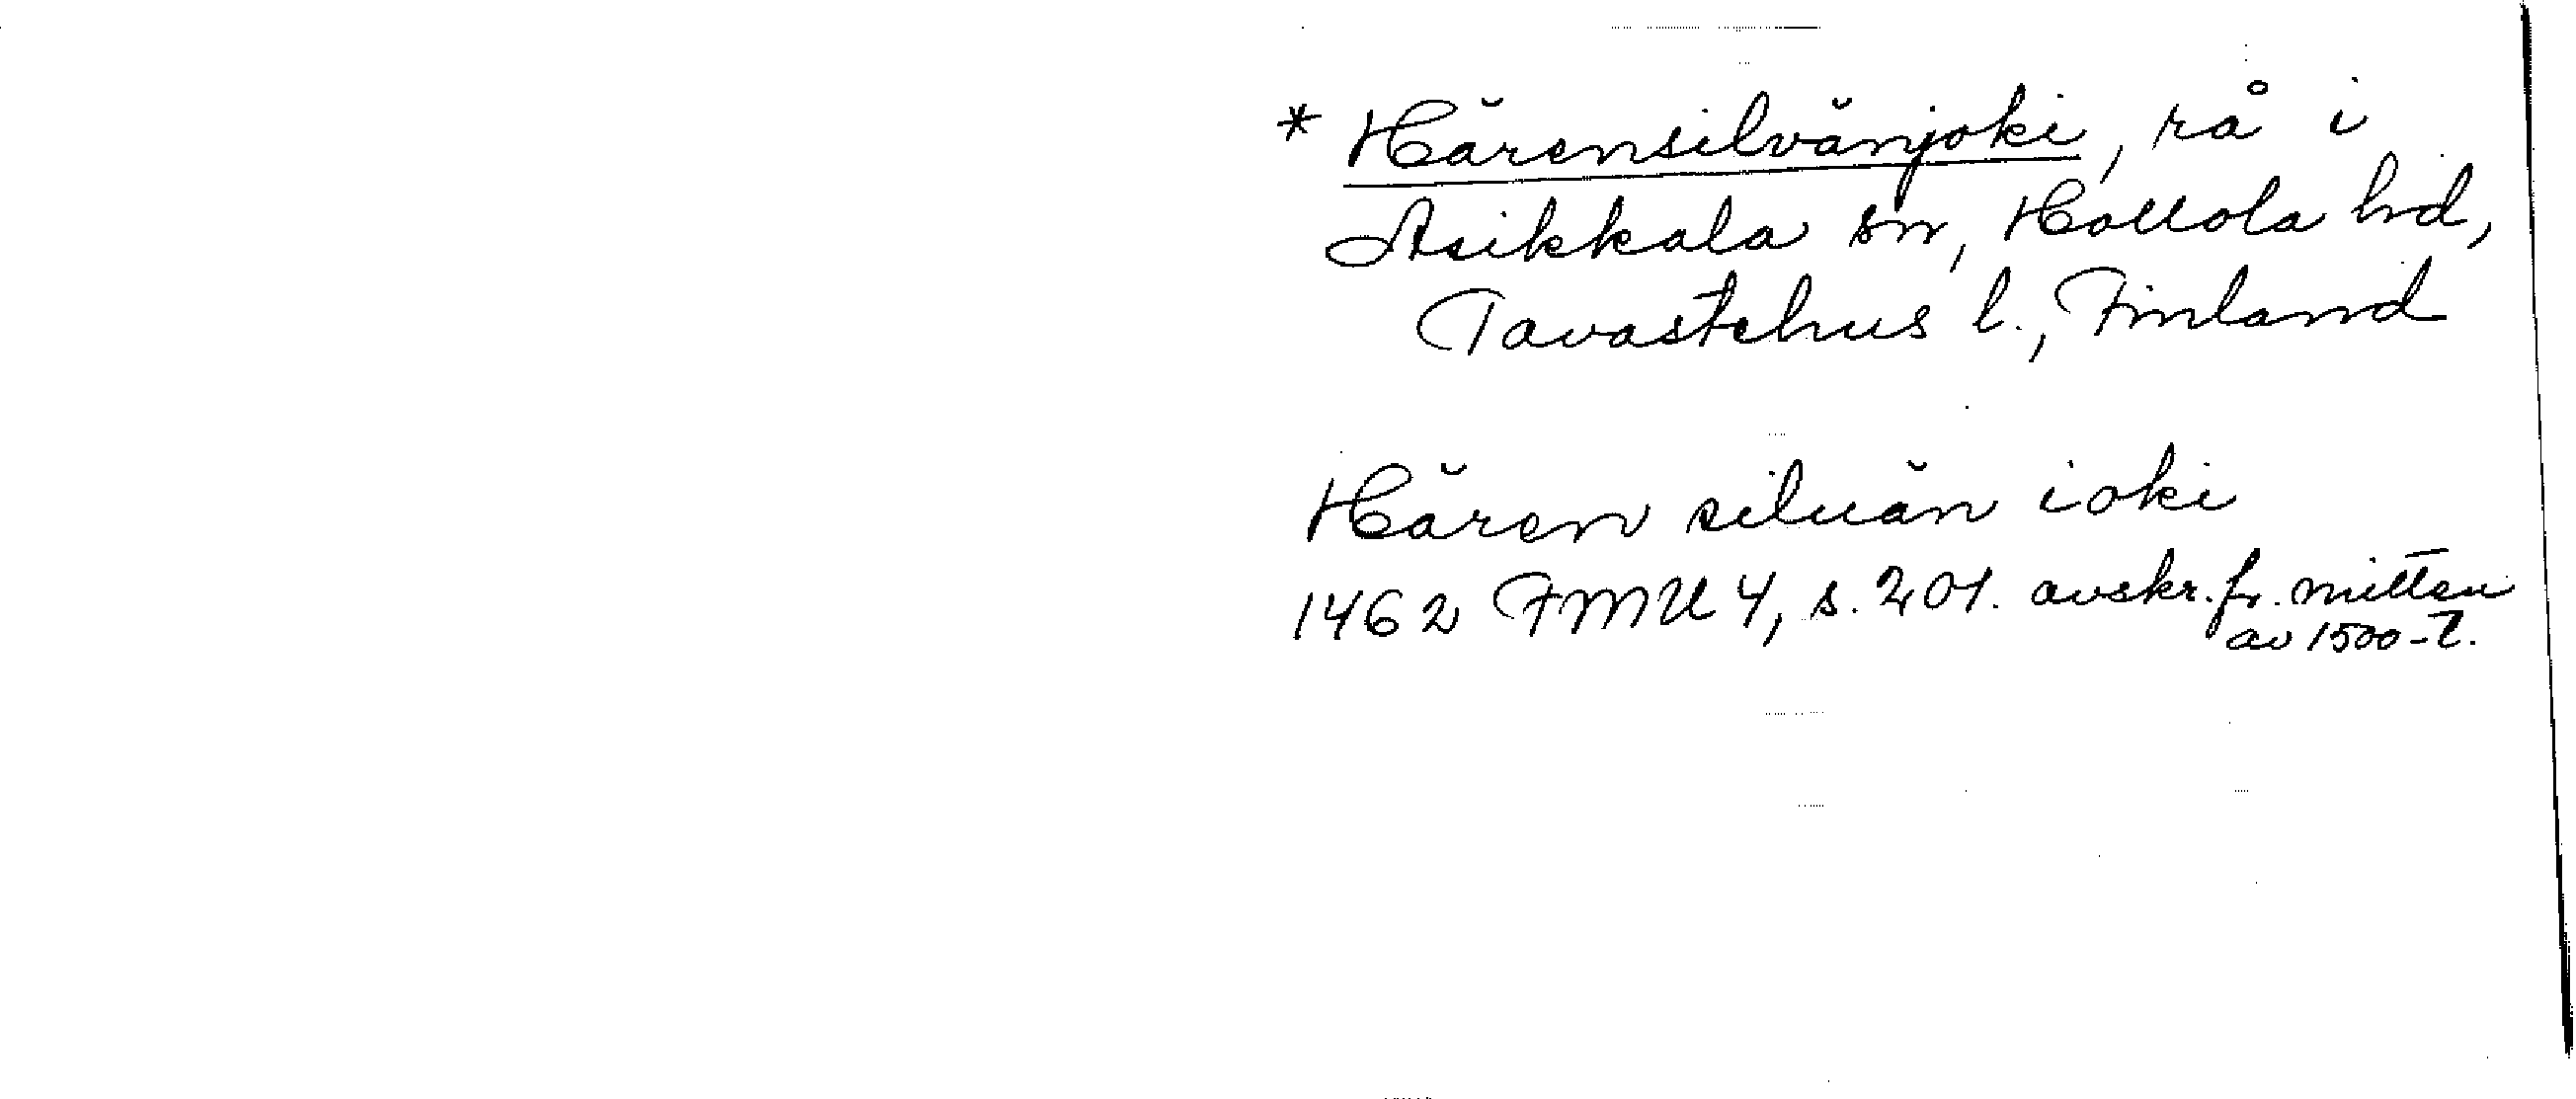 * Härensilvänjoki, rå i
Asikkala sn, Hollola hd,
Tavastehus l., Finland
Hären siluän ioki
1462 FMU 4, s. 201. avskr. fr. mitten
av 1500-t.